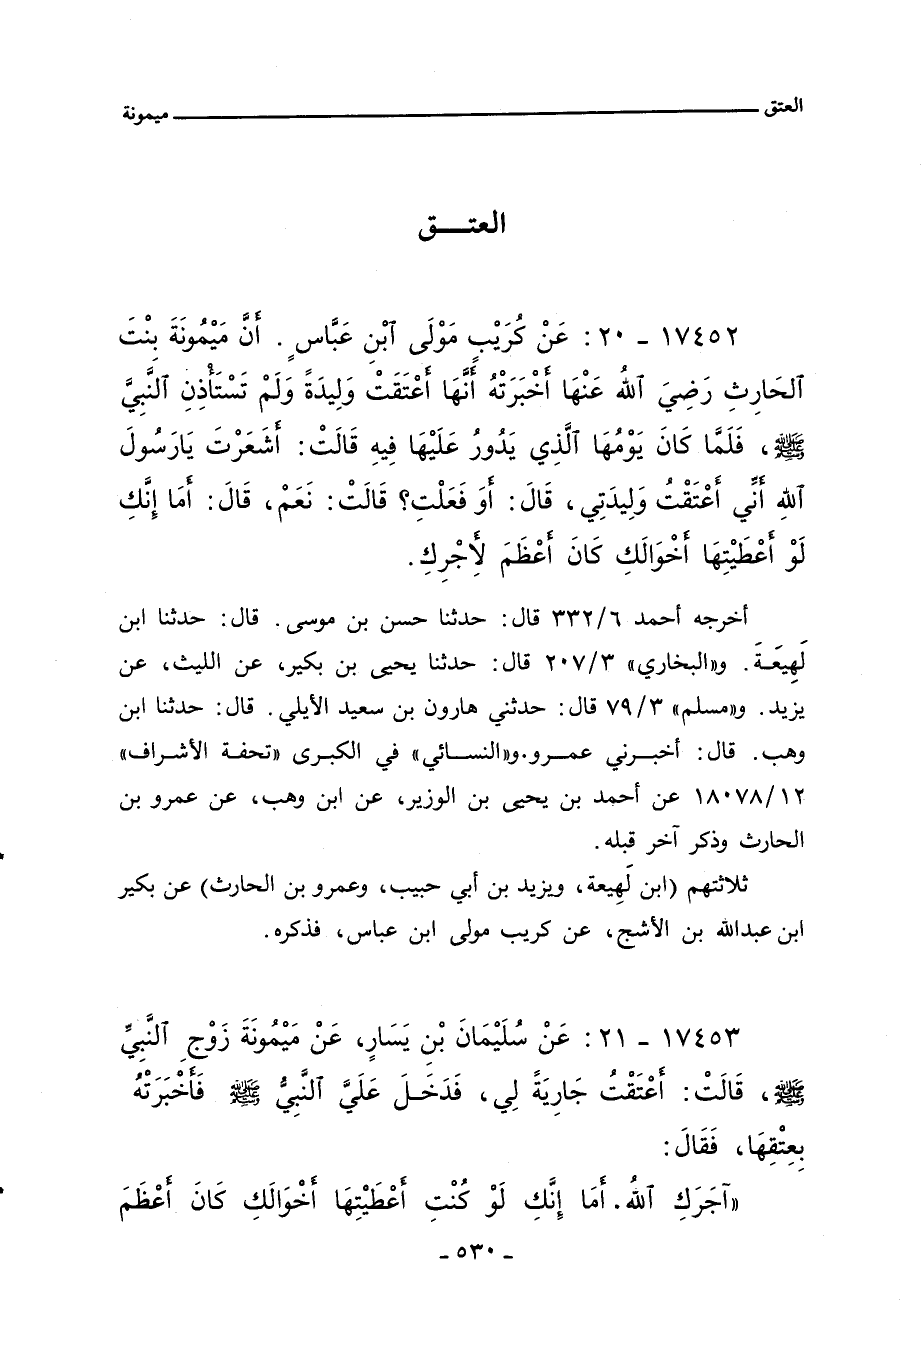 العتق ميمونة
العتـــق
١٧٤٥٢ - ٢٠ : عَنْ كُرَيْبٍ مَوْلَى ٱبْنِ عَبَّاسٍ . أَنَّ مَيْمُونَةَ بِنْتَ
ٱلحَارِثِ رَضِيَ ٱللهُ عَنْهَا أَخْبَرَتْهُ أَنَّهَا أَعْتَقَتْ وَلِيدَةً وَلَمْ تَسْتَأْذِنِ ٱلنَّبِيَّ
ﷺ، فَلَمَّا كَانَ يَوْمُهَا ٱلَّذِي يَدُورُ عَلَيْهَا فِيهِ قَالَتْ: أَشَعَرْتَ يَارَسُولَ
ٱللهِ أَنِّي أَعْتَقْتُ وَلِيدَتِي، قَالَ: أَوَ فَعَلْتِ؟ قَالَتْ: نَعَمْ، قَالَ: أَمَا إِنَّكِ
لَوْ أَعْطَيْتِهَا أَخْوَالَكِ كَانَ أَعْظَمَ لأَجْرِكِ.
أخرجه أحمد ٣٣٢/٦ قال: حدثنا حسن بن موسى. قال: حدثنا ابن
لَهِيعَـة. و«البخاري» ٢٠٧/٣ قال: حدثنا يحيى بن بكير، عن الليث، عن
يزيد. و«مسلم» ٧٩/٣ قال: حدثني هارون بن سعيد الأيلي. قال: حدثنا ابن
وهب. قال: أخبـرني عمـرو.و«النسـائي» في الكبـرى «تحفـة الأشراف»
١٨٠٧٨/١٢ عن أحمد بن يحيى بن الوزير، عن ابن وهب، عن عمرو بن
الحارث وذكر آخر قبله.
ثلاثتهم (ابن لَهِيعة، ويزيد بن أبي حبيب، وعمرو بن الحارث) عن بكير
ابن عبدالله بن الأشج، عن كريب مولى ابن عباس، فذكره.
١٧٤٥٣ - ٢١ : عَنْ سُلَيْمَانَ بْنِ يَسَارٍ، عَنْ مَيْمُونَةَ زَوْجِ ٱلنَّبِيِّ
ﷺ، قَالَتْ: أَعْتَقْتُ جَارِيَةً لِي، فَدَخَـلَ عَلَيَّ ٱلنَّبِيُّ ﷺ فَأَخْبَرَتْهُ
بِعِتْقِهَا، فَقَالَ:
«آجَرَكِ ٱللهُ. أَمَا إِنَّكِ لَوْ كُنْتِ أَعْطَيْتِهَا أَخْوَالَكِ كَانَ أَعْظَمَ
- ٥٣٠ -